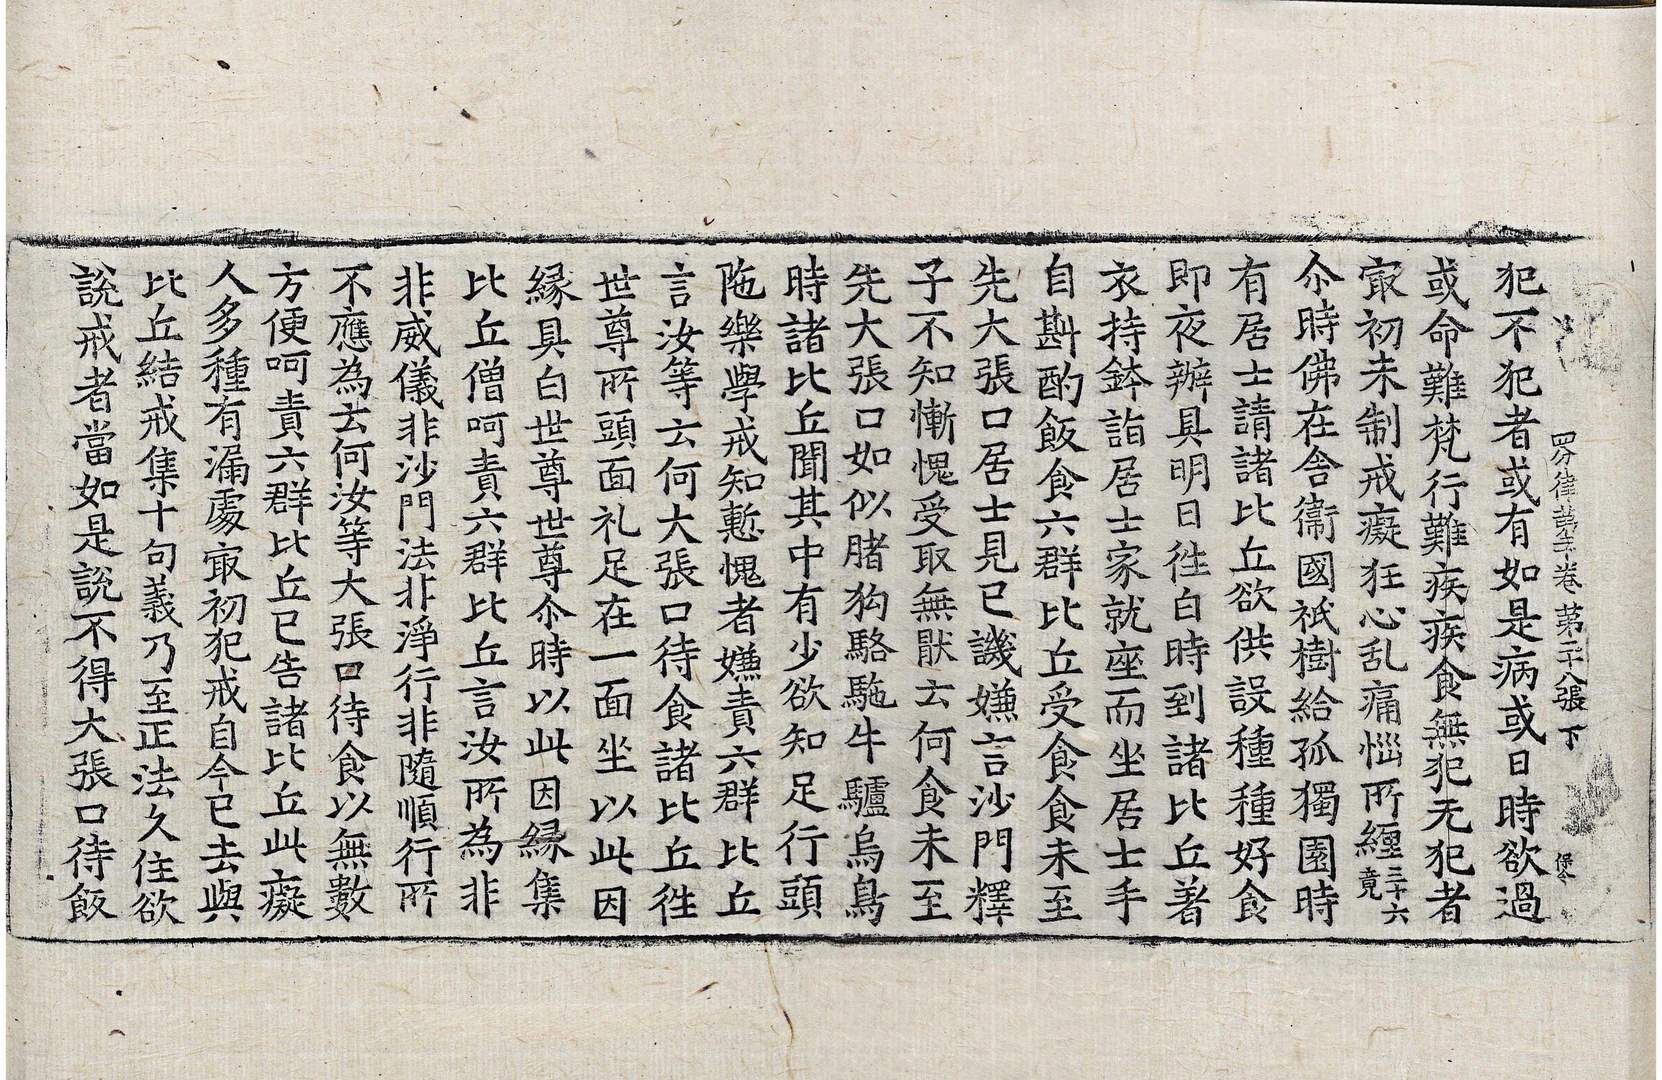 四分律第二十卷 第二十八張 下
犯不犯者或有如是病或日時欲過
或命難梵行難疾疾食無犯无犯者
㝡初未制戒癡狂心乱痛惱所纏三十六竟
尒時佛在舍衞國祇樹給孤獨園時
有居士請諸比丘欲供設種種好食
即夜辦具明日徃白時到諸比丘著
衣持鉢詣居士家就座而坐居士手
自斟酌飯食六群比丘受食食未至
先大張口居士見已譏嫌言沙門釋
子不知慚愧受取無猒云何食未至
先大張口如似賭狗駱駞牛驢烏鳥
時諸比丘聞其中有少欲知足行頭
陁樂學戒知慙愧者嫌責六群比丘
言汝等云何大張口待食諸比丘徃
世尊所頭面礼足在一面坐以此因
縁具白世尊世尊尒時以此因縁集
比丘僧呵責六群比丘言汝所為非
非威儀非沙門法非淨行非隨順行所
不應為云何汝等大張口待食以無數
方便呵責六群比丘已告諸比丘此癡
人多種有漏處㝡初犯戒自今已去與
比丘結戒集十句義乃至正法久住欲
說戒者當如是說不得大張口待飯